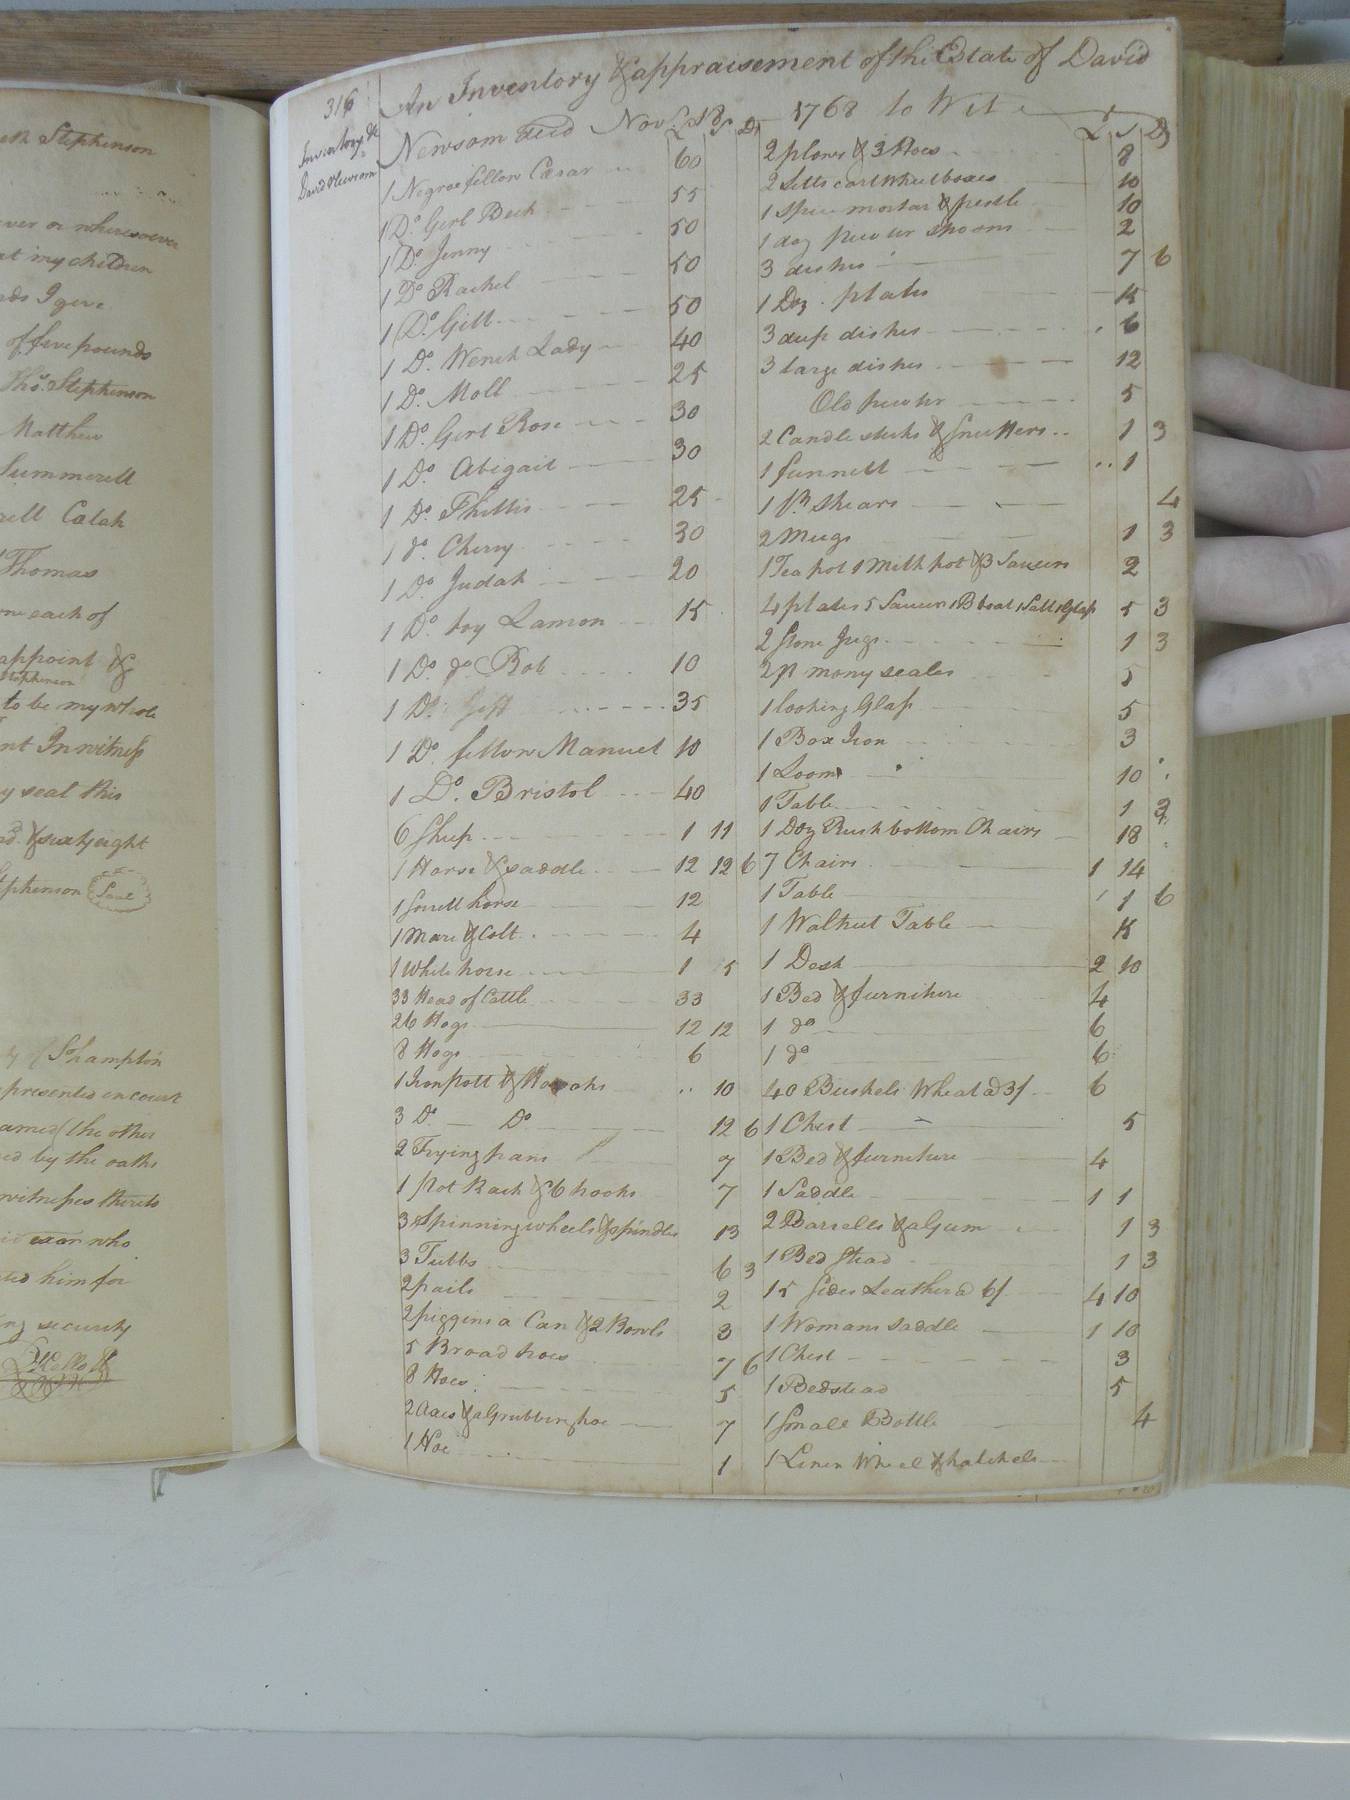 esh Stephenson
ever or wheresoever
at my children
nds I give
of five pounds
Thos. Stephenson
Matthew
Summerell
rell Calah
Thomas
one each of
appoint &
Stephenson
to be my whole
nt In witness
y seal this
d. & sixty eight
Stephenson Seal
of So.hampton
presented in court
ames (the other
ed by the oaths
witnesses thereto
exor who
ted him for
ng security
316
Inventory &c
David Newsom
An Inventory & appraisement of the Estate of David
Newsom decd Nov. 18 1768 to Wit
£ S D
1 Negroe fellow Cæsar 60
1 Do. Girl Beck 55
1 Do. Jenny 50
1 Do. Rachel 50
1 Do. Gill 50
1 Do. Wench Lady 40
1 Do. Moll 25
1 Do. Girl Rose 30
1 Do. Abigail 30
1 Do. Phillis 25
1 do. Cherry 30
1 Do. Judah 20
1 Do. boy Lamon 15
1 Do. do. Bob 10
1 Do. 35
1 Do. fellow Manuel 10
1 Do. Bristol 40
6 Sheep 1 11
1 Horse & saddle 12 12 6
1 Sorrell horse 12
1 Mare & Colt 4
1 White horse 1 5
33 Head of Cattle 33
26 Hogs 12 12
8 Hogs 6
1 Iron pott & 10
3 Do. Do 12 6
2 Frying pans 7
1 pot Rack & 6 hooks 7
3 Spinning wheels & spindles 13
3 Tubbs 6 3
2 pails 2
2 piggins a Can & 2 Bowls 3
5 Broad hoes 7 6
8 Hoes 5
2 axes & a Grubbing hoe 7
1 Hoe 1
£ S D
2 plows & 3 Hoes 8
2 Setts cart Wheel boxes 10
1 Spice mortar & pestle 10
1 doz pewter spoons 2
3 dishes 7 6
1 Doz. plates 15
3 deep dishes 6
3 large dishes 12
Old pewter 5
2 Candlesticks & Snuffers 1 3
1 funnell 1
1 pr. Shears 4
2 Mugs 1 3
1 Tea pot 1 Milk pot & 3 Saucers 2
4 plates 5 Saucers 1 B boat 1 Salt 1 Glass 5 3
2 Stone Jugs 1 3
2 pr mony scales 5
1 looking Glass 5
1 Box Iron 3
1 Loom 10
1 Table 1 3
1 Doz Rush bottom Chairs 18
7 Chairs 1 14
1 Table 1 6
1 Walnut Table 15
1 Desk 2 10
1 Bed & furniture 4
1 do 6
1 do 6
40 Bushels Wheat @ 3/ 6
1 Chest 5
1 Bed & furniture 4
1 Saddle 1 1
2 Barrells & a Gum 1 3
1 Bed Stead 1 3
15 Sides Leather @ 6/ 4 10
1 Womans saddle 1 10
1 Chest 3
1 Bedstead 5
1 Small Bottle 4
1 Linen Wheel & hatchels